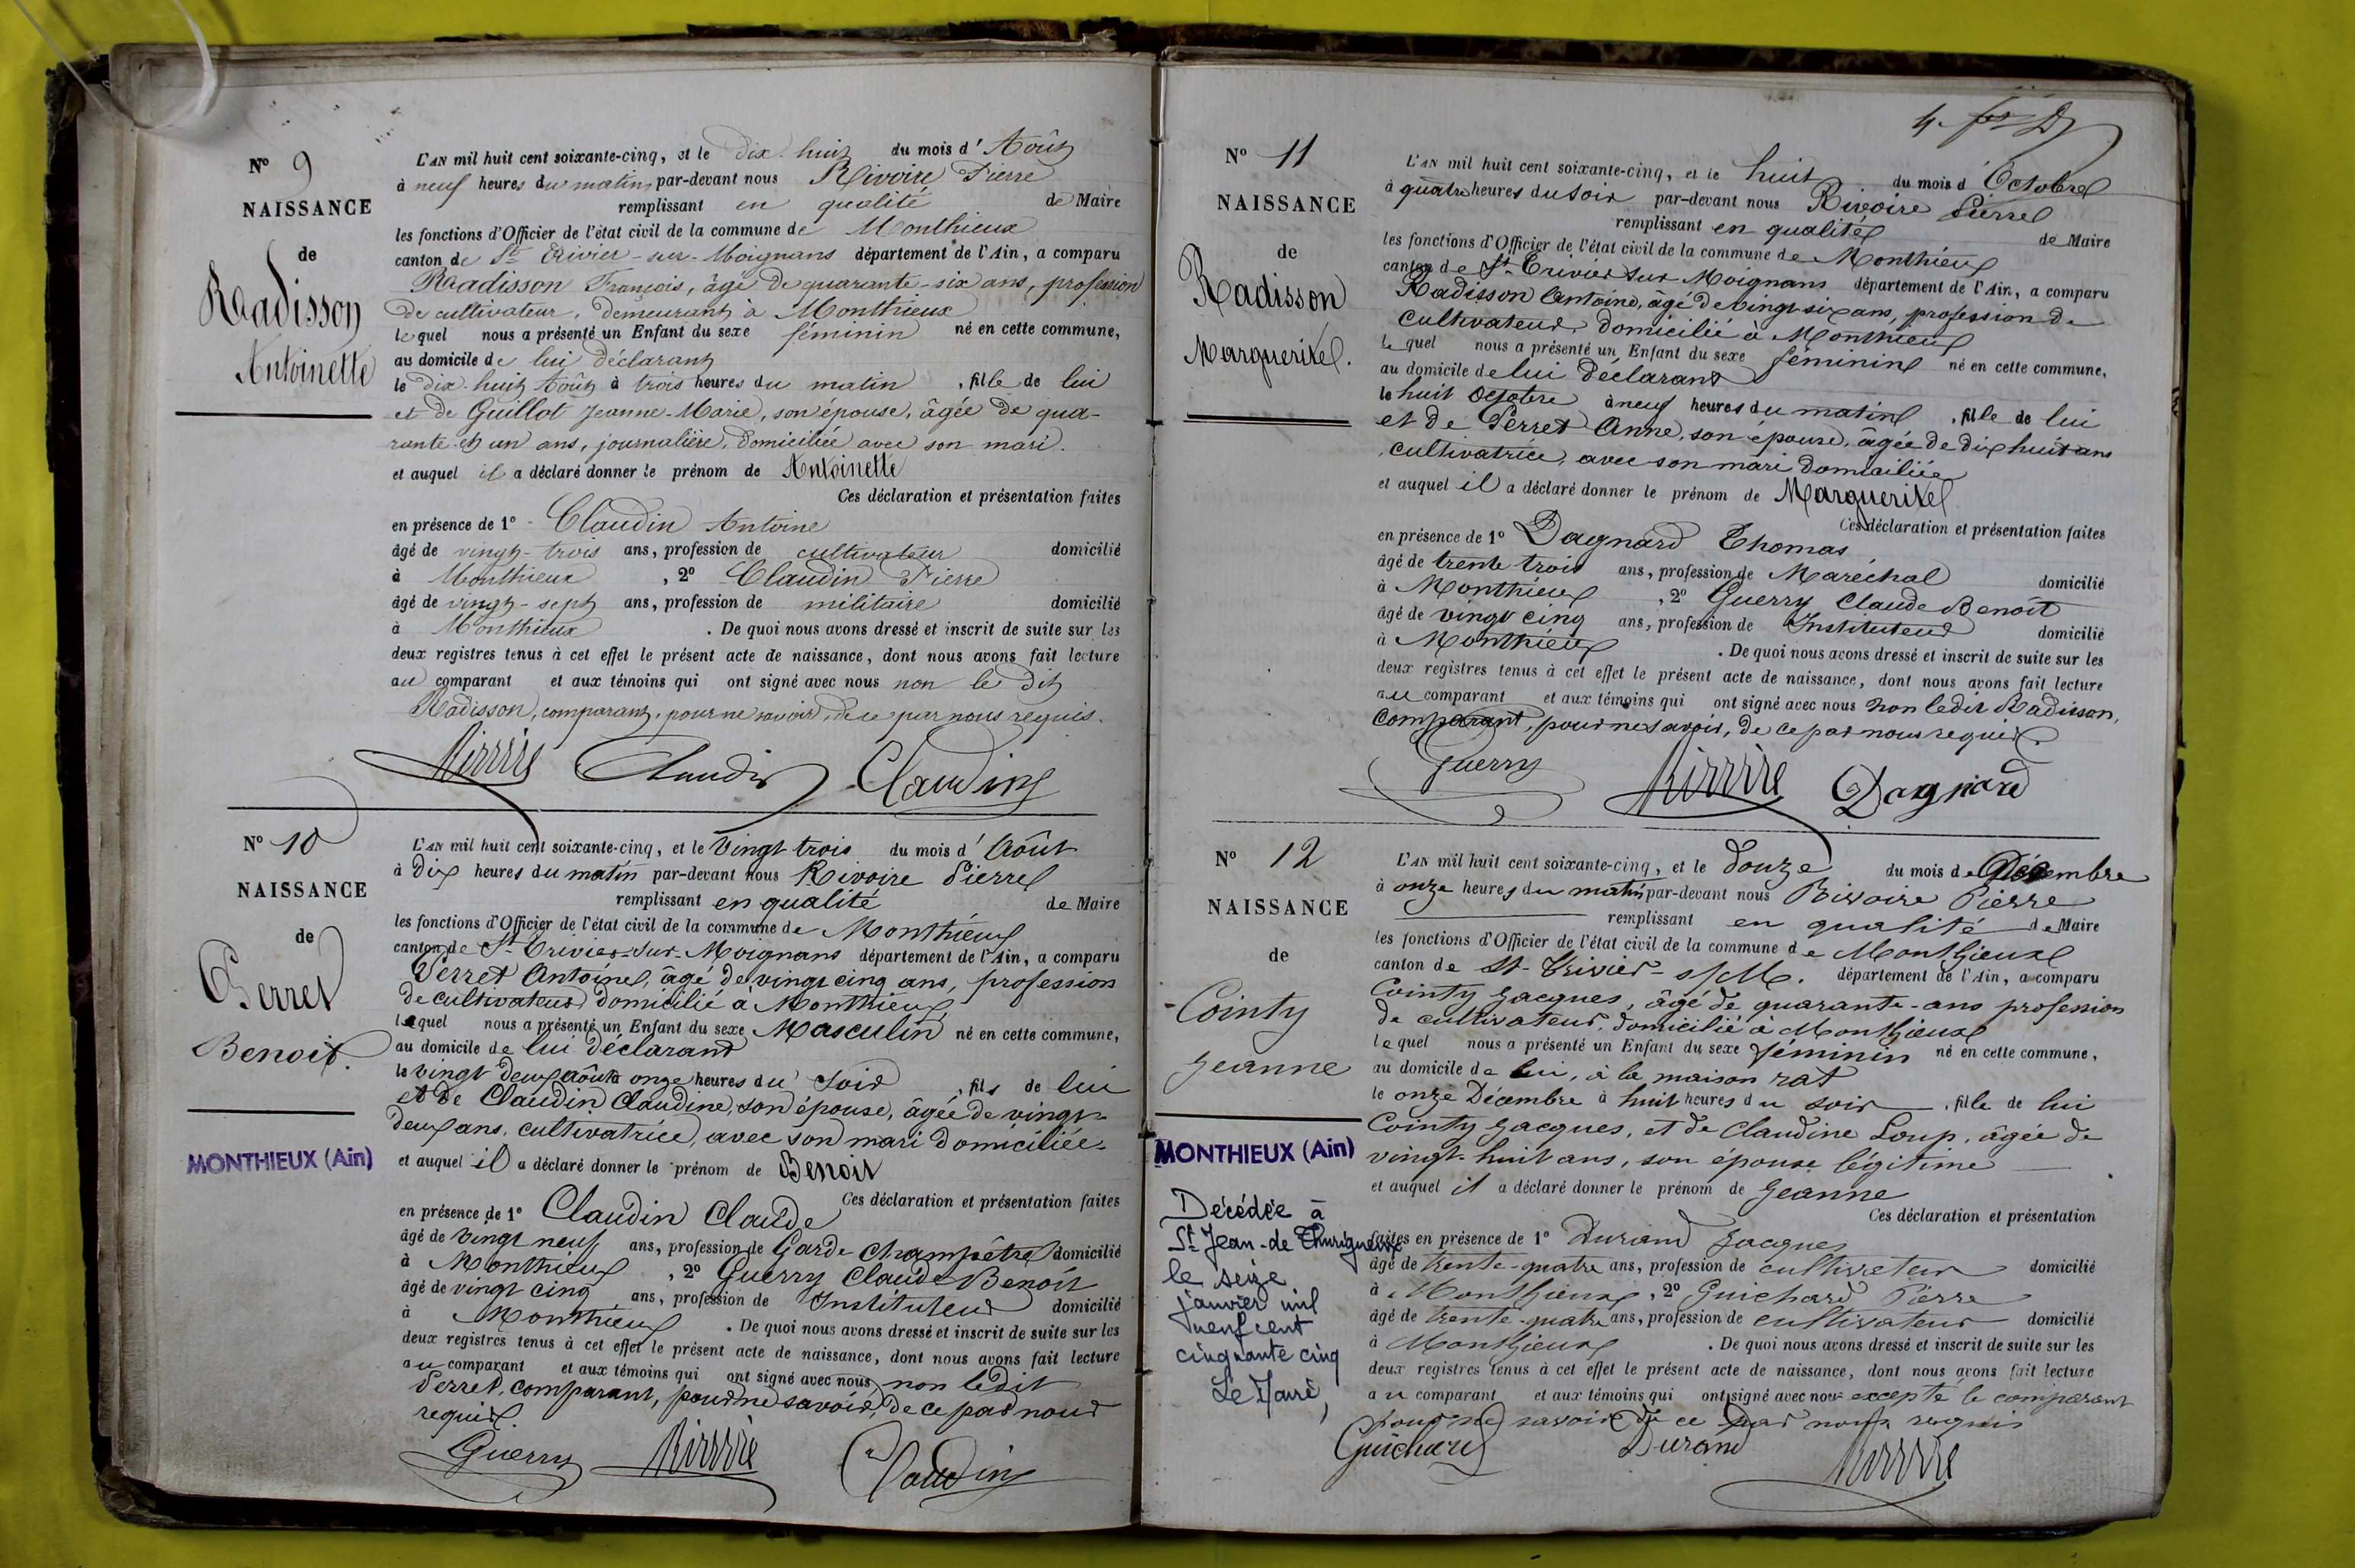 N° 9
NAISSANCE
de
Raadisson
Antoinette
L'AN mil huit cent soixante-cinq, et le dix-huit du mois d'Août
à neuf heures du matin, par-devant nous Rivoire Pierre
remplissant en qualité de Maire
les fonctions d'Officier de l'état civil de la commune de Monthieux
canton de St Trivier-sur-Moignans département de l'Ain, a comparu
Raadisson François, âgé de quarante-six ans, profession
de cultivateur, demeurant à Monthieux
lequel nous a présenté un Enfant du sexe féminin né en cette commune,
au domicile de lui déclarant
le dix-huit Août à trois heures du matin, fille de lui
et de Guillot Jeanne-Marie, son épouse, âgée de qua-
rante-et un ans, journalière, domiciliée avec son mari.
et auquel il a déclaré donner le prénom de Antoinette
Ces déclaration et présentation faites
en présence de 1° Claudin Antoine
âgé de vingt-trois ans, profession de cultivateur domicilié
à Monthieux, 2° Claudin Pierre
âgé de vingt-sept ans, profession de militaire domicilié
à Monthieux. De quoi nous avons dressé et inscrit de suite sur les
deux registres tenus à cet effet le présent acte de naissance, dont nous avons fait lecture
au comparant et aux témoins qui ont signé avec nous non le dit
Radisson, comparant, pour ne savoir, de ce par nous requis.
Rivoire Claudin Claudin
N° 10
NAISSANCE
de
Perret
Benoit.
MONTHIEUX (Ain)
L'AN mil huit cent soixante-cinq, et le vingt trois du mois d'Août
à dix heures du matin par-devant nous Rivoire Pierre
remplissant en qualité de Maire
les fonctions d'Officier de l'état civil de la commune de Monthieux
canton de St Trivier-sur-Moignans département de l'Ain, a comparu
Perret Antoine, âgé de vingt cinq ans, profession
de cultivateur domicilié à Monthieux
lequel nous a présenté un Enfant du sexe Masculin né en cette commune,
au domicile de lui déclarant
le vingt deux août à onze heures du soir, fils de lui
et de Claudin Claudine, son épouse, âgée de vingt-
deux ans, cultivatrice, avec son mari domiciliée
et auquel il a déclaré donner le prénom de Benoit
Ces déclaration et présentation faites
en présence de 1° Claudin Claude
âgé de vingt neuf ans, profession de Garde Champêtre domicilié
à Monthieux, 2° Guerry Claude Benoît
âgé de vingt cinq ans, profession de Instituteur domicilié
à Monthieux. De quoi nous avons dressé et inscrit de suite sur les
deux registres tenus à cet effet le présent acte de naissance, dont nous avons fait lecture
au comparant et aux témoins qui ont signé avec nous, non ledit
Perret, comparant, pour ne savoir, de ce par nous
requis.
Guerry Rivoire Claudin
N° 11
NAISSANCE
de
Radisson
Marguerite.
L'AN mil huit cent soixante-cinq, et le huit du mois d'Octobre
à quatre heures du soir par-devant nous Rivoire Pierre
remplissant en qualité de Maire
les fonctions d'Officier de l'état civil de la commune de Monthieux
canton de St Trivier sur Moignans département de l'Ain, a comparu
Radisson Antoine, âgé de vingt six ans, profession de
cultivateur domicilié à Monthieux
lequel nous a présenté un Enfant du sexe féminin né en cette commune,
au domicile de lui déclarant
le huit Octobre à neuf heures du matin, fille de lui
et de Perret Anne, son épouse, âgée de dix huit ans
cultivatrice, avec son mari domiciliée
et auquel il a déclaré donner le prénom de Marguerite
Ces déclaration et présentation faites
en présence de 1° Dagnard Thomas
âgé de trente trois ans, profession de Maréchal domicilié
à Monthieux, 2° Guerry Claude Benoît
âgé de vingt cinq ans, profession de Instituteur domicilié
à Monthieux. De quoi nous avons dressé et inscrit de suite sur les
deux registres tenus à cet effet le présent acte de naissance, dont nous avons fait lecture
au comparant et aux témoins qui ont signé avec nous non ledit Radisson,
comparant, pour ne savoir, de ce par nous requis.
Guerry Rivoire Dagnard
N° 12
NAISSANCE
de
Cointy
Jeanne
MONTHIEUX (Ain)
Décédée à
St Jean-de Thurigneux
le seize
janvier mil
neuf cent
cinquante cinq
Le Maire,
L'AN mil huit cent soixante-cinq, et le douze du mois de Décembre
à onze heures du matin par-devant nous Rivoire Pierre
remplissant en qualité de Maire
les fonctions d'Officier de l'état civil de la commune de Monthieux
canton de St-Trivier-s/M. département de l'Ain, a comparu
Cointy Jacques, âgé de quarante-ans profession
de cultivateur, domicilié à Monthieux
lequel nous a présenté un Enfant du sexe féminin né en cette commune,
au domicile de lui, à la maison rat
le onze Décembre à huit heures du soir, fille de lui
Cointy Jacques, et de Claudine Loup, âgée de
vingt-huit ans, son épouse légitime
et auquel il a déclaré donner le prénom de Jeanne
Ces déclaration et présentation
faites en présence de 1° Durand Jacques
âgé de trente-quatre ans, profession de cultivateur domicilié
à Monthieux, 2° Guichard Pierre
âgé de trente-quatre ans, profession de cultivateur domicilié
à Monthieux. De quoi nous avons dressé et inscrit de suite sur les
deux registres tenus à cet effet le présent acte de naissance, dont nous avons fait lecture
au comparant et aux témoins qui ont signé avec nous excepté le comparant
pour ne savoir de ce par nous requis
Guichard Durand Rivoire